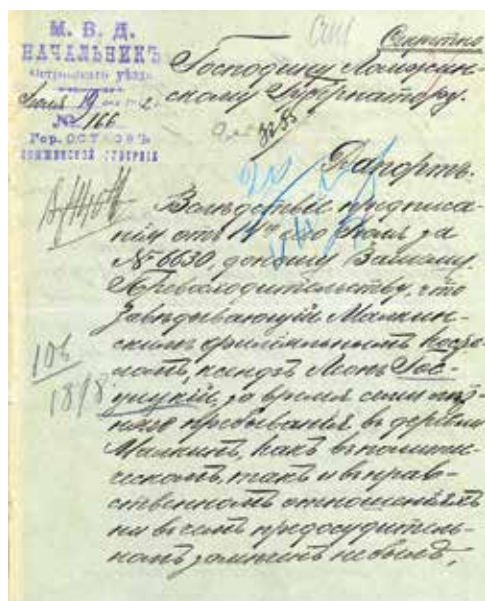 М. В. Д.
НАЧАЛЬНИКЪ
Островскаго уѣзда
Іюля 19
№ 166
Гор. ОСТРОВЪ
ЛОМЖИНСКОЙ ГУБЕРНІИ
Секретно
Господину Ломжин-
скому Губернатору.
Рапортъ.
Вслѣдствіе предписа-
нія отъ 14 сего Іюля за
№ 6630, доношу Вашему
Превосходительству, что
Завѣдывающій Малкин-
скимъ филіальнымъ косте-
ломъ, ксендзъ Леонъ Гос-
за время
пребыванія въ деревнѣ
Малкинѣ, какъ въ политич-
ческомъ, такъ и въ нрав-
ственномъ отношеніяхъ
ни въ чемъ предосудитель-
номъ замѣченъ не былъ,
106
18/8